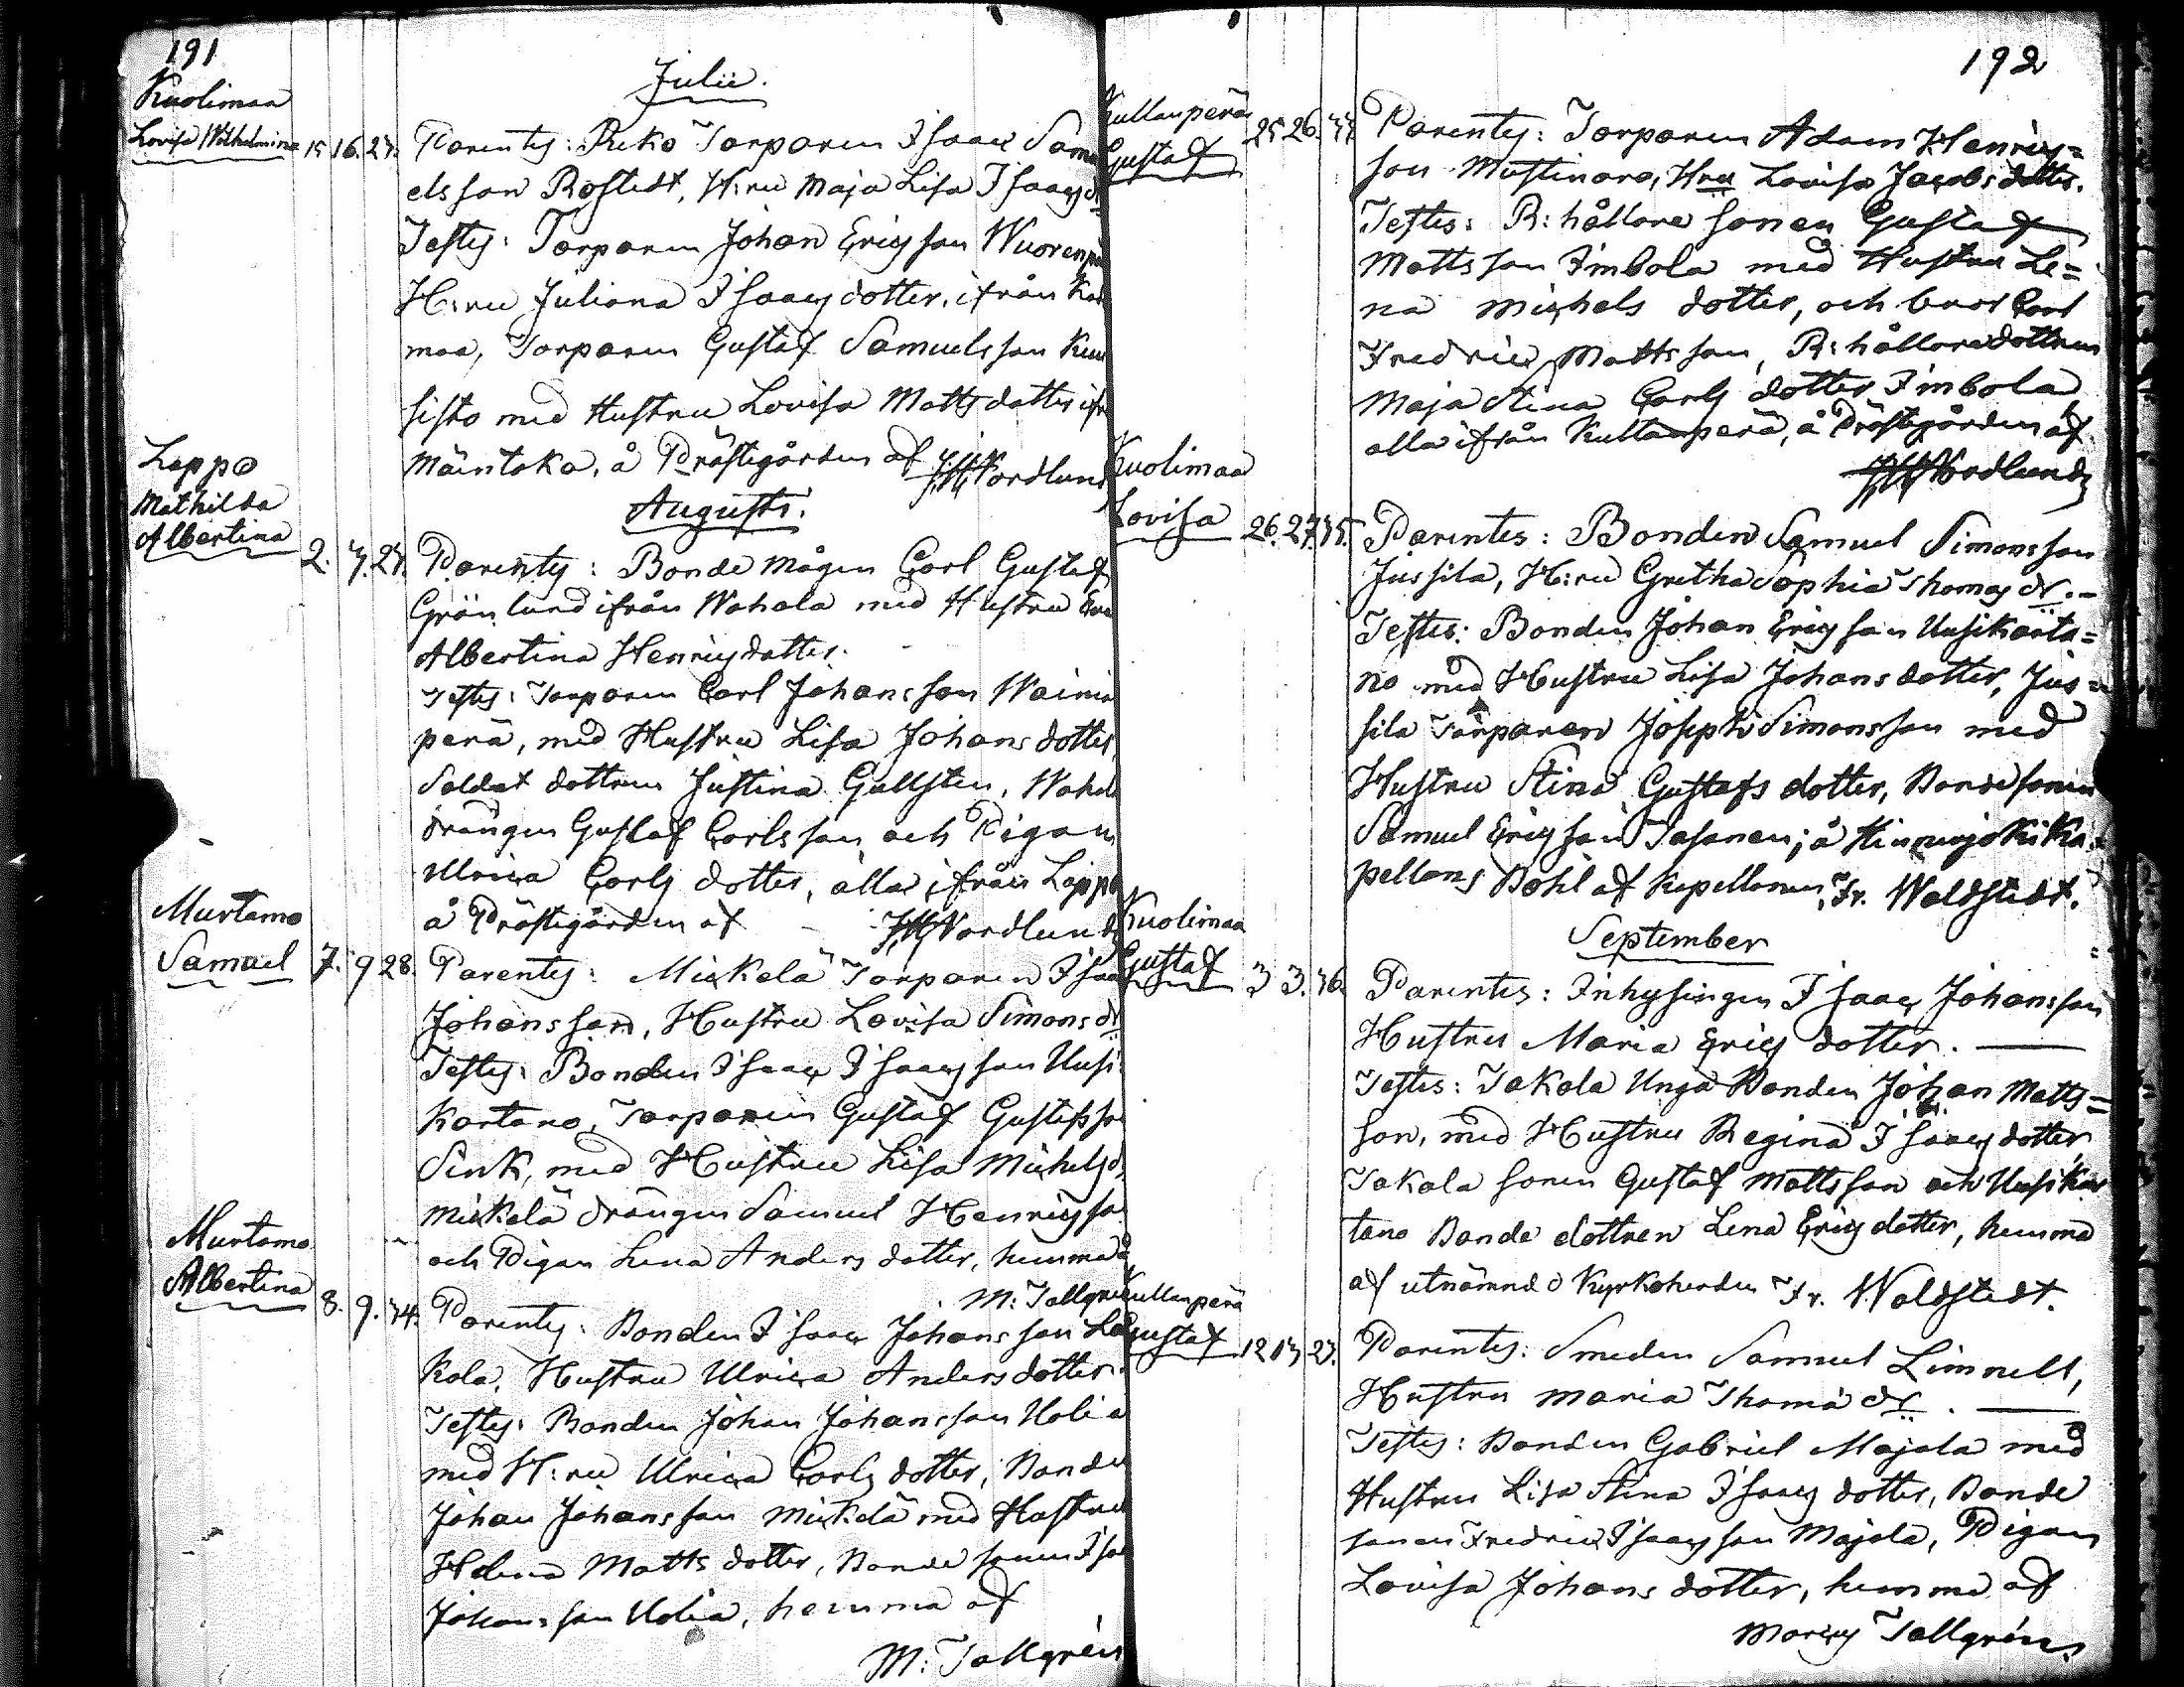 191
Julii.
Kuolimaa
Lovisa Wilhelmina 15 16. 27.
Parentes: Riko Torparen Isaac Samu
elsson Rostedt, H:ru Maja Lisa Isaacs dr
Testes: Torparen Johan Ericsson Wuorenpä
H:ru Juliana Isaacs dotter, ifrån
maa, Torparen Gustaf Samuelsson
sisto med Hustru Lovisa Matts dotter ifr
Mäntaka, å Prästegården af J.H. Nordlund
Augusti.
Lappo
Mathilda
Albertina 2. 7. 27.
Parentes: Bonde mågen Carl Gustaf
Grönlund ifrån Wahala med Hustru Eva
Albertina Henrics dotter.
Testes: Torparen Carl Johansson Wainio
perä, med Hustru Lisa Johans dotter,
Soldat dottren Justina Gullsten, Wahala
drängen Gustaf Carlsson och Pigan
Ulrica Carls dotter, alla ifrån Lappo
å Prästegården af J.H. Nordlund
Murtamo
Samuel 7. 9 28.
Parentes: Mickelä Torparen Isaac
Johansson, Hustru Lovisa Simons dr
Testes: Bonden Isaac Isaacsson Uusi
kartano, Torparen Gustaf Gustafsson
Sink, med Hustru Lisa Michels d.
Mickelä drängen Samuel Henricsson
och Pigan Lena Anders dotter, hemma af
M: Tallgrén
Murtamo
Albertina 8. 9. 34.
Parentes: Bonden Isaac Johansson
kola, Hustru Ulrica Anders dotter.
Testes: Bonden Johan Johansson Uolia
med H:ru Ulrica Carls dotter, Bonden
Johan Johansson Mickelä med Hustru
Helena Matts dotter, Bonde sonen Isaac
Johansson Uolia, hemma af
M: Tallgrén
192
Kullanperä
Gustaf 25 26.
Parentes: Torparen Adam Henrics=
son Mustinoro, Hru Lovisa Jacobs dotter.
Testes: R:hållare sonen Gustaf
MattssonImbola med Hustru Le=
na Michels dotter, och bror Carl
Fredric Mattsson, R:hållaredottren
Maja Stina Carls dotter Imbola
alla ifrån Kullanperä, å Prästgården af
J.H. Nordlund
Kuolimaa
Lovisa 26. 27. 35.
Parentes: Bonden Samuel Simonsson
Jussila, H:ru Gretha Sophia Thomas dr. -
Testes: Bonden Johan Ericsson Uusikarta=
no med Hustru Lisa Johans dotter, Jus=
sila Torparen Joseph Simonsson med
Hustru Stina Gustafs dotter, Bondesonen
Samuel Ericsson Tasanen; å Hinnerjoki Ka=
pellans Bohl af Kapellanen, Fr. Waldstedt.
September
Kuolimaa
Gustaf 3 3. 36.
Parentes: Inhysingen Isaac Johansson
Hustru Maria Erics dotter.
Testes: Takala Unga Bonden Johan Matts=
son, med Hustru Regina Isaacs dotter,
Takala sonen Gustaf Mattsson och Uusikar
tano Bonde dottren Lena Erics dotter, hemma
af utnämnd Kyrkoherden Fr. Waldstedt.
Kullanperä
Gustaf 12 13 27.
Parentes: Smeden Samuel Limnell,
Hustru Maria Thoma dr.
Testes: Bonden Gabriel Majala med
Hustru Lisa Stina Isaacs dotter, Bonde
sonen Fredric Isaacsson Majala, Pigan
Lovisa Johans dotter, hemma af
Tallgrén